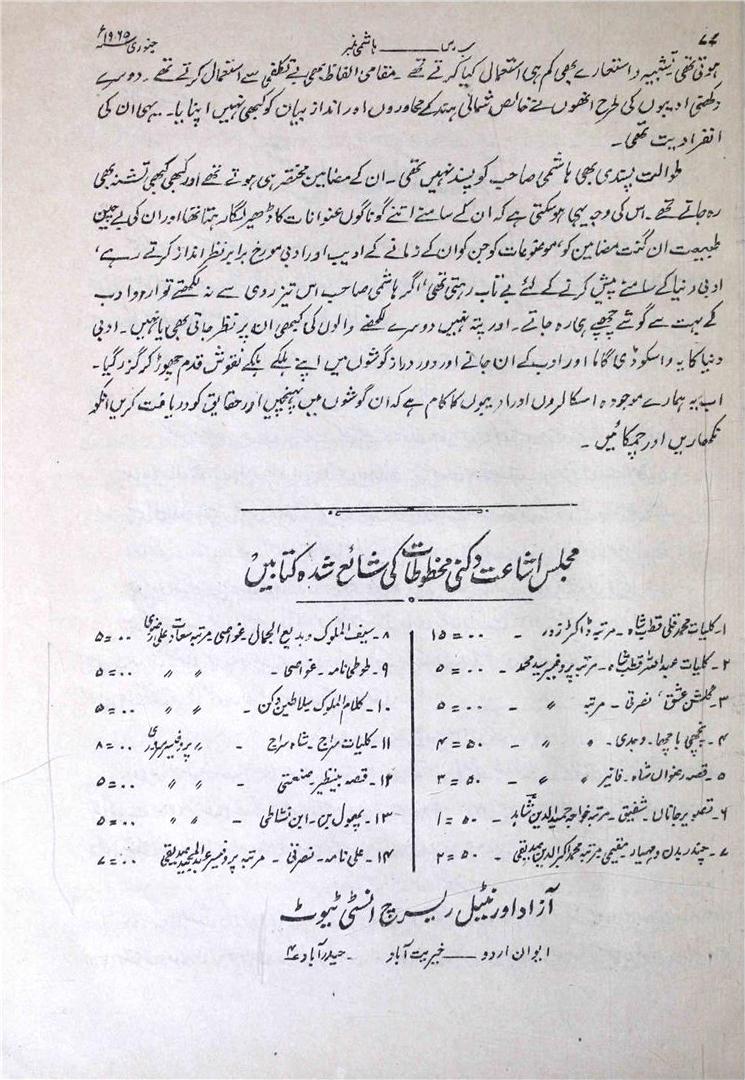 ۷۴ سب رس ــــ ہاشمی نمبر جنوری ۱۹۶۵ء
ہوتی تھی تشبیہ و استعارے بھی کم ہی استعمال کیا کرتے تھے ۔ مقامی الفاظ بھی بے تکلفی سے استعمال کرتے تھے ۔ دوسرے
دکھنی ادیبوں کی طرح انھوں نے خالص شمالی ہند کے محاوروں اور انداز بیان کو کبھی نہیں اپنایا ۔ یہی ان کی
انفرادیت تھی ۔
طوالت پسندی بھی ہاشمی صاحب کو پسند نہیں تھی ۔ ان کے مضامین مختصر ہی ہوتے تھے اور کبھی کبھی تشنہ بھی
رہ جاتے تھے ۔ اس کی وجہ یہی ہوسکتی ہے کہ ان کے سامنے اتنے گوناگوں عنوانات کا ڈھیر لگا رہتا تھا اور ان کی بے چین
طبیعت ان گنت مضامین کو، موضوعات کو جن کو ان کے زمانے کے ادیب اور ادبی مورخ برابر نظر انداز کرتے رہے،
ادبی دنیا کے سامنے پیش کرنے کے لئے بے تاب رہتی تھی، اگر ہاشمی صاحب اس تیز روی سے نہ لکھتے تو اردو ادب
کے بہت سے گوشے چھپے ہی رہ جاتے ۔ اور پتہ نہیں دوسرے لکھنے والوں کی کبھی ان پر نظر جاتی بھی یا نہیں ۔ ادبی
دنیا کا یہ واسکو ڈی گاما اور ادب کے ان جانے اور دور دراز گوشوں میں اپنے ہلکے ہلکے نقوش قدم چھوڑ کر گزر گیا ۔
اب یہ ہمارے موجودہ اسکالروں اور ادیبوں کا کام ہے کہ ان گوشوں میں پہنچیں اور حقایق کو دریافت کریں انکو
نکھاریں اور چمکائیں ۔
مجلس اشاعت دکنی مخطوطات کی شائع شدہ کتابیں
۱۔ کلیات محمد قلی قطب شاہ ۔ مرتبہ ڈاکٹر زور - ۰۰ = ۱۵
۲۔ کلیات عبداللہ قطب شاہ ۔ مرتبہ پروفیسر سید محمد - ۰۰ = ۵
۳۔ گلشن عشق، نصرتی - مرتبہ 〃 - ۰۰ = ۵
۴۔ پنچھی باچھا ۔ وجدی ۔ 〃 〃 - ۵۰ = ۴
۵۔ قصہ رضوان شاہ ۔ فائز 〃 〃 - ۵۰ = ۳
۶۔ تصویر جاناں ۔ شفیق ۔ مرتبہ خواجہ حمید الدین شاہد - ۵۰ = ۱
۷۔ چندر بدن و مہیار ۔ مقیمی مرتبہ محمد اکبر الدین صدیقی - ۵۰ = ۲
۸۔ سیف الملوک و بدیع الجمال ۔ غواصی مرتبہ سعادت علی رضوی ۰۰ = ۵
۹۔ طوطی نامہ ۔ غواصی ۔ 〃 〃 ۰۰ = ۵
۱۰۔ کلام الملوک سلاطین دکن - 〃 〃 ۰۰ = ۵
۱۱۔ کلیات سراج ۔ شاہ سراج - 〃 پروفیسر سروری ۰۰ = ۸
۱۲۔ قصہ بینظیر ۔ صنعتی - 〃 〃 ۰۰ = ۵
۱۳۔ پھول بن ۔ ابن نشاطی - 〃 〃 ۰۰ = ۵
۱۴۔ علی نامہ ۔ نصرتی - مرتبہ پروفیسر عبدالمجید صدیقی ۰۰ = ۷
آزاد اورینٹیل ریسرچ انسٹی ٹیوٹ
ایوان اردو ــــ خیریت آباد - حیدرآباد ۴